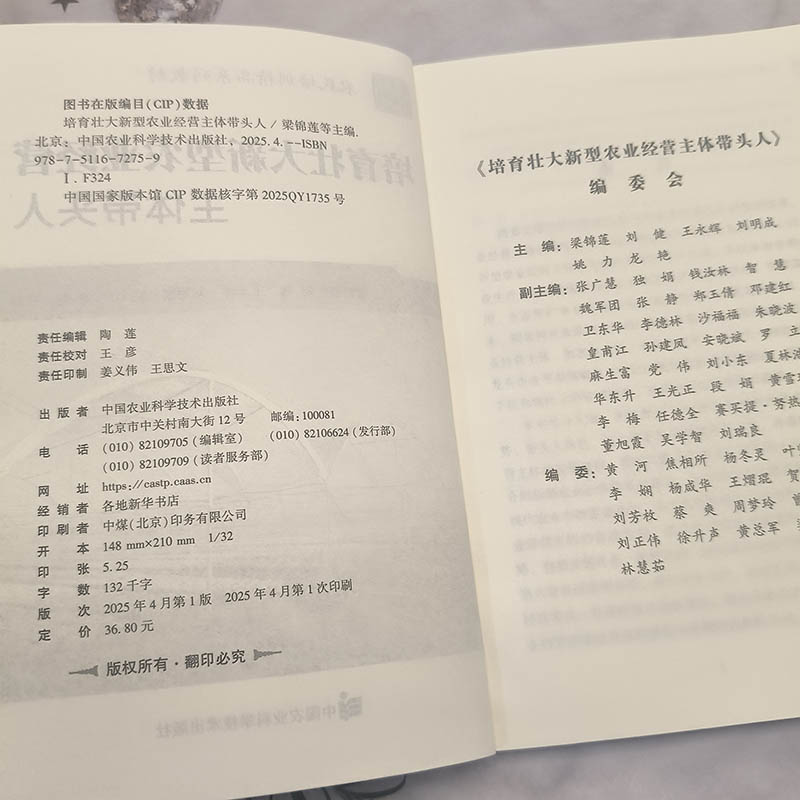 图书在版编目(CIP)数据
培育壮大新型农业经营主体带头人 / 梁锦莲等主编.
北京:中国农业科学技术出版社,2025.4. --ISBN
978-7-5116-7275-9
Ⅰ.F324
中国国家版本馆 CIP 数据核字第 2025QY1735 号
责任编辑 陶 莲
责任校对 王 彦
责任印制 姜义伟 王思文
出 版 者 中国农业科学技术出版社
北京市中关村南大街 12 号 邮编:100081
电 话 (010) 82109705 (编辑室) (010) 82106624 (发行部)
(010) 82109709 (读者服务部)
网 址 https://castp.caas.cn
经 销 者 各地新华书店
印 刷 者 中煤(北京)印务有限公司
开 本 148 mm×210 mm 1/32
印 张 5.25
字 数 132 千字
版 次 2025 年 4 月第 1 版 2025 年 4 月第 1 次印刷
定 价 36.80 元
版权所有·翻印必究
《培育壮大新型农业经营主体带头人》
编 委 会
主 编:梁锦莲 刘 健 王永辉 刘明成
姚 力 龙 艳
副主编:张广慧 独 娟 钱汝林 智 慧
魏军团 张 静 郑玉倩 邓建红
卫东华 李德林 沙福福 朱晓波
皇甫江 孙建凤 安晓斌 罗 立
麻生富 党 伟 刘小东 夏林
华东升 王光正 段 娟 黄雪
李 梅 任德全 赛买提·努热
董旭霞 吴学智 刘瑞良
编 委:黄 河 焦相所 杨冬灵 叶
李 娴 杨咸华 王熠琨 贺
刘芳枚 蔡 爽 周梦玲
刘正伟 徐升声 黄总军
林慧茹